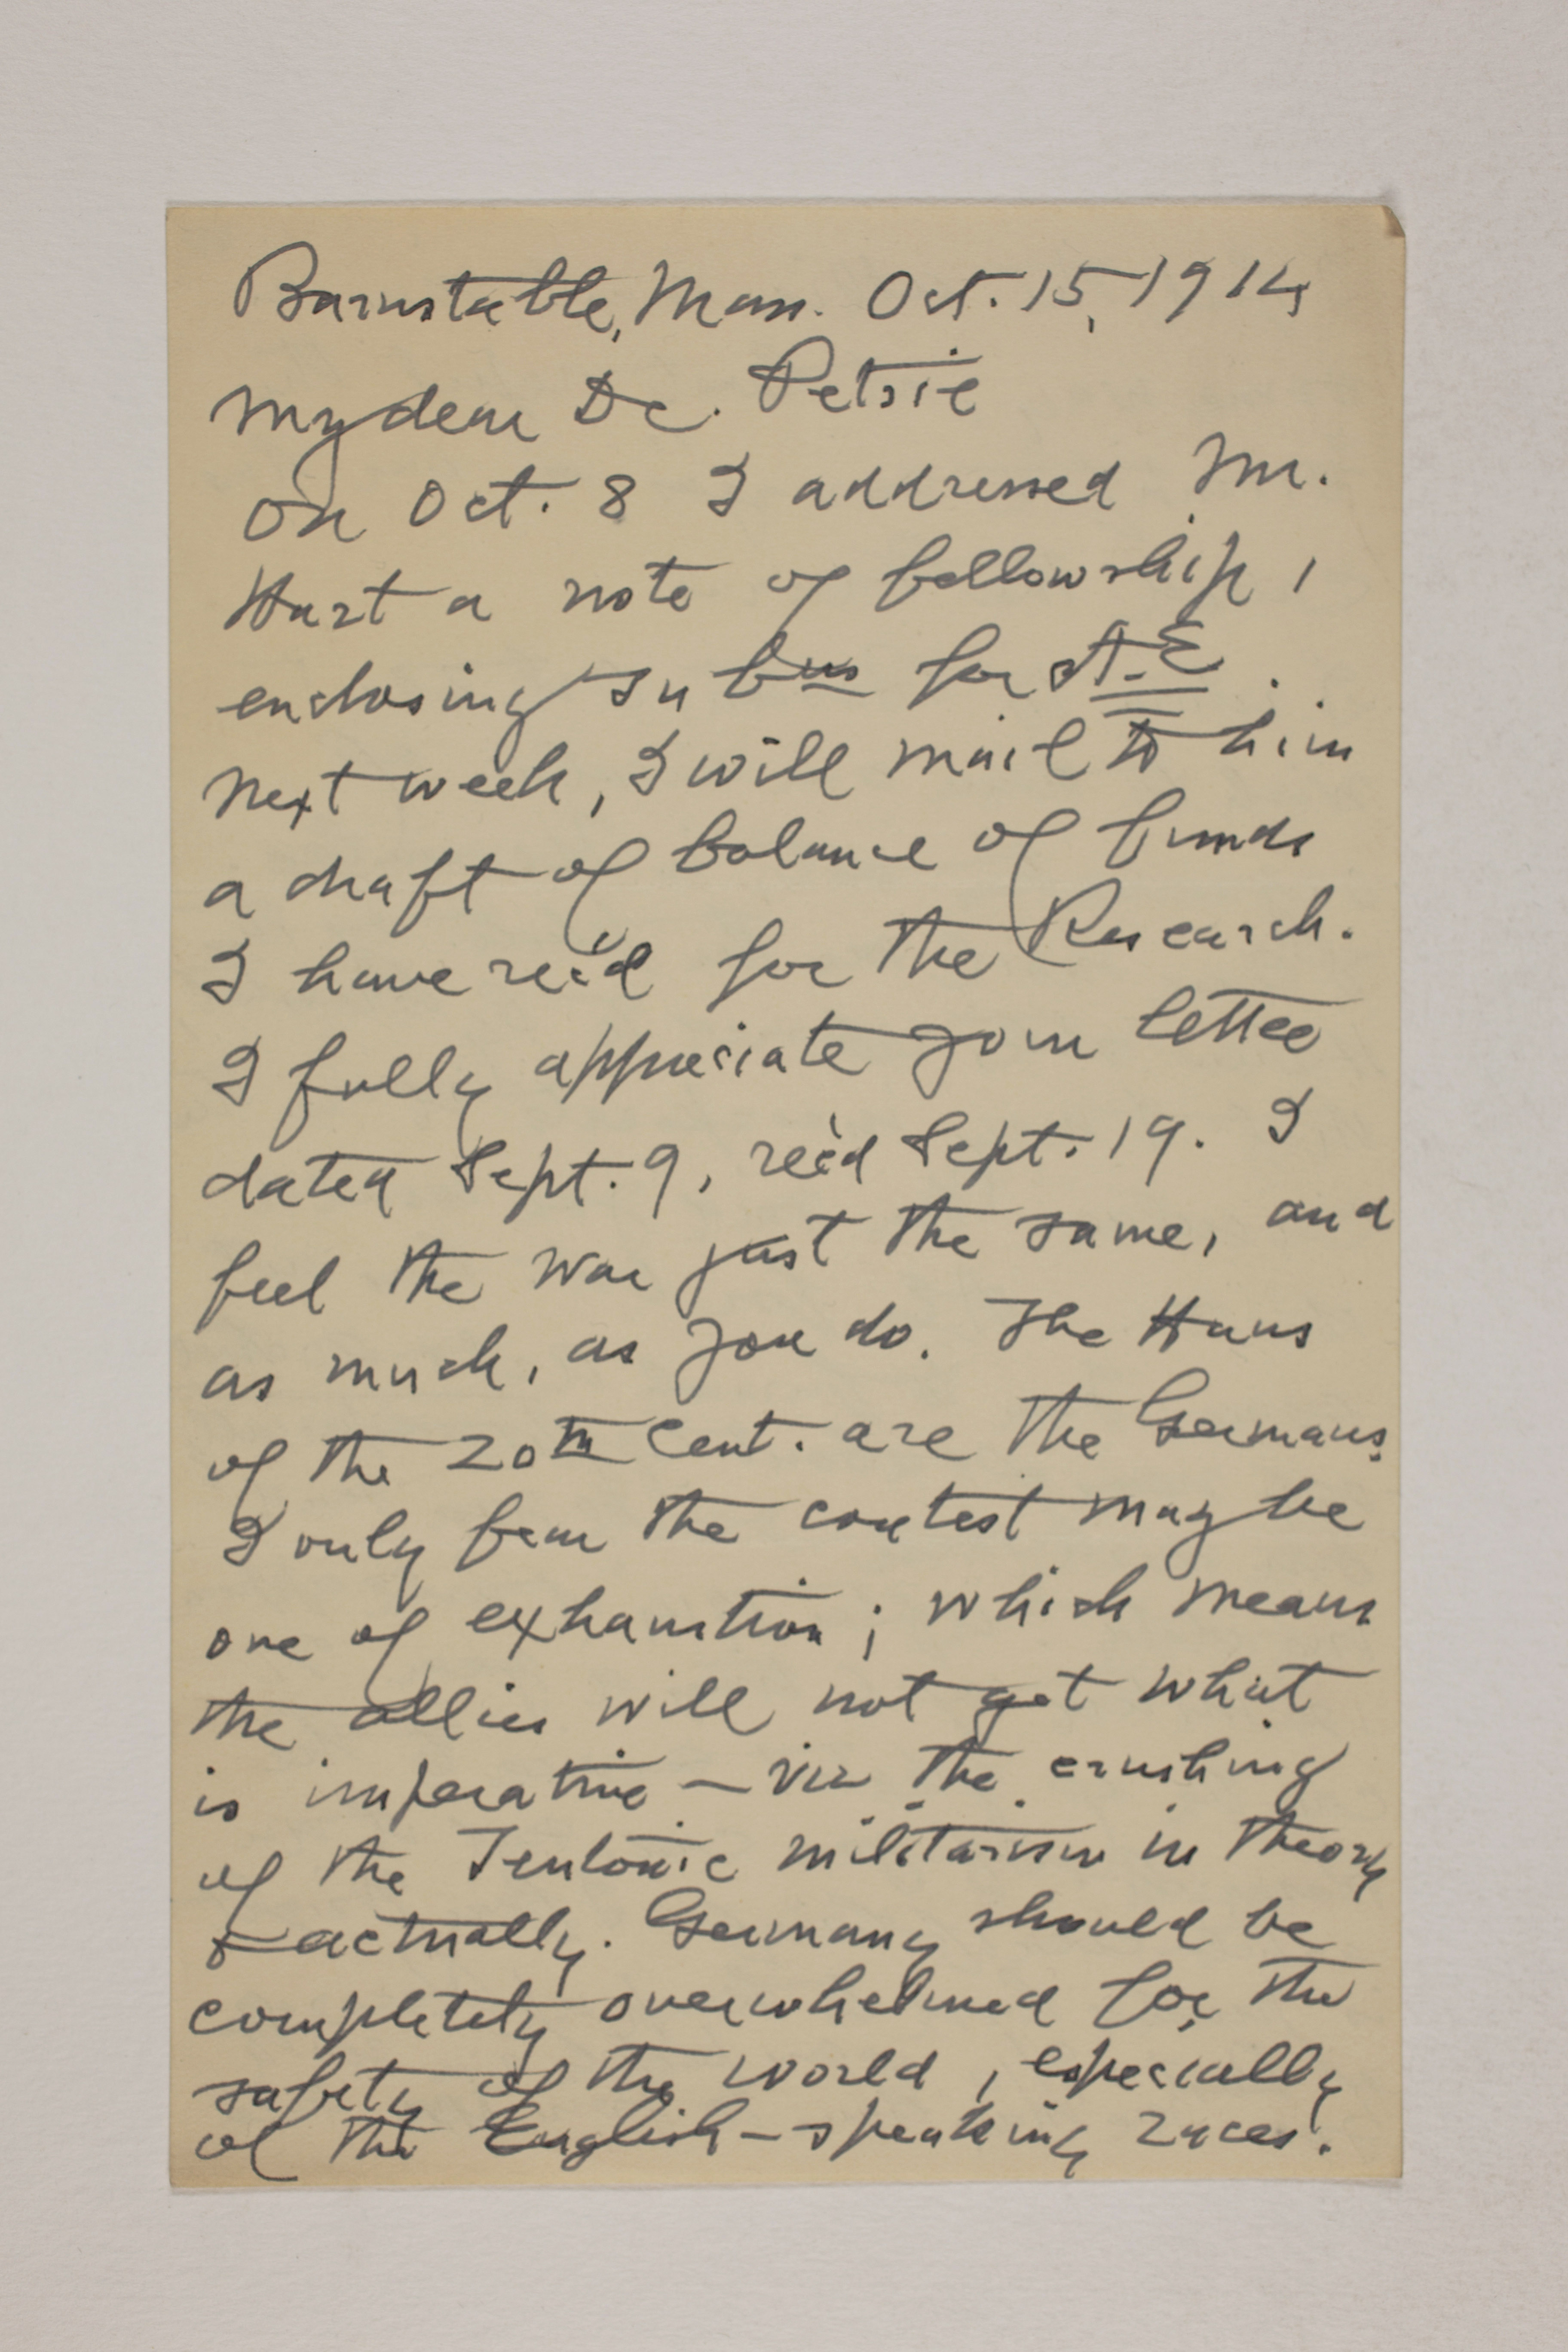 Barnstable, Mass. Oct. 15, 1914
My dear Dr. Petrie
On Oct. 8 I addressed Mr.
Hart a note of fellowship,
enclosing subns for A.E.
Next week, I will mail to him
a draft of balance of funds
I have rec'd for the Research.
I fully appreciate your letter
dated Sept. 9, rec'd Sept. 19. I
feel the war just the same, and
as much, as you do. The Huns
of the 20th Cent. are the Germans.
I only fear the contest may be
one of exhaustion; which means
the allies will not get what
is imperative – viz the crushing
of the Teutonic militarism in theory
& actually. Germany should be
completely overwhelmed for the
safety of the world, especially
of the English-speaking races.